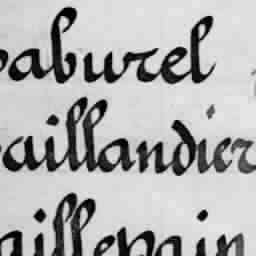 aburel
aillandier
aillepain